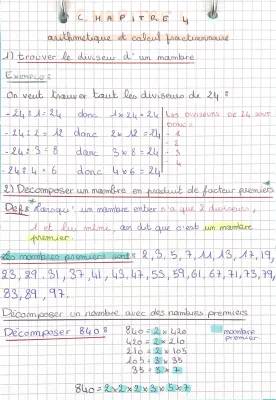 CHAPITRE 4
arithmétique et calcul fractionnaire
1) trouver le diviseur d'un nombre
Exemple :
On veut trouver tout les diviseurs de 24 :
- 24 : 1 = 24 donc 1 × 24 = 24
- 24 : 2 = 12 donc 2 × 12 = 24
- 24 : 3 = 8 donc 3 × 8 = 24
- 24 : 4 = 6 donc 4 × 6 = 24
Les diviseurs de 24 sont
donc :
- 1
- 2
- 3
- 4
2) Décomposer un nombre en produit de facteur premiers
Def : Lorsqu'un nombre entier n'a que 2 diviseurs,
1 et lui même, on dit que c'est un nombre
premier.
Les nombres premiers sont : 2, 3, 5, 7, 11, 13, 17, 19,
23, 29, 31, 37, 41, 43, 47, 53, 59, 61, 67, 71, 73, 79,
83, 89, 97.
Décomposer un nombre avec des nombres premiers
Décomposer 840 :
840 = 2 × 420
420 = 2 × 210
210 = 2 × 105
105 = 3 × 35
35 = 5 × 7
nombre
premier
840 = 2 × 2 × 2 × 3 × 5 × 7